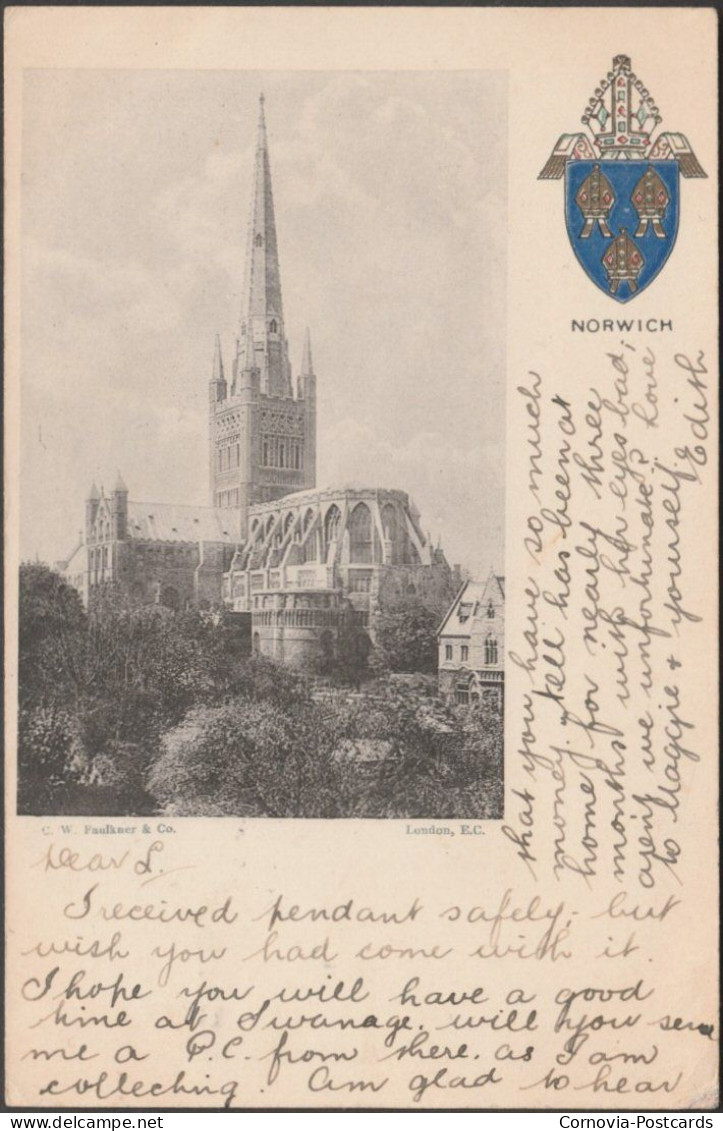 NORWICH
C. W. Faulkner & Co.
London, E.C.
Dear L.
I received pendant safely, but
wish you had come with it.
I hope you will have a good
time at Swanage. will you send
me a P.C. from there. as I am
collecting. Am glad to hear
that you have so much
money. Nell has been at
home for nearly three
months with her eyes bad;
arent we unfortunate? Love
to Maggie & yourself
Edith
Cornovia-Postcards